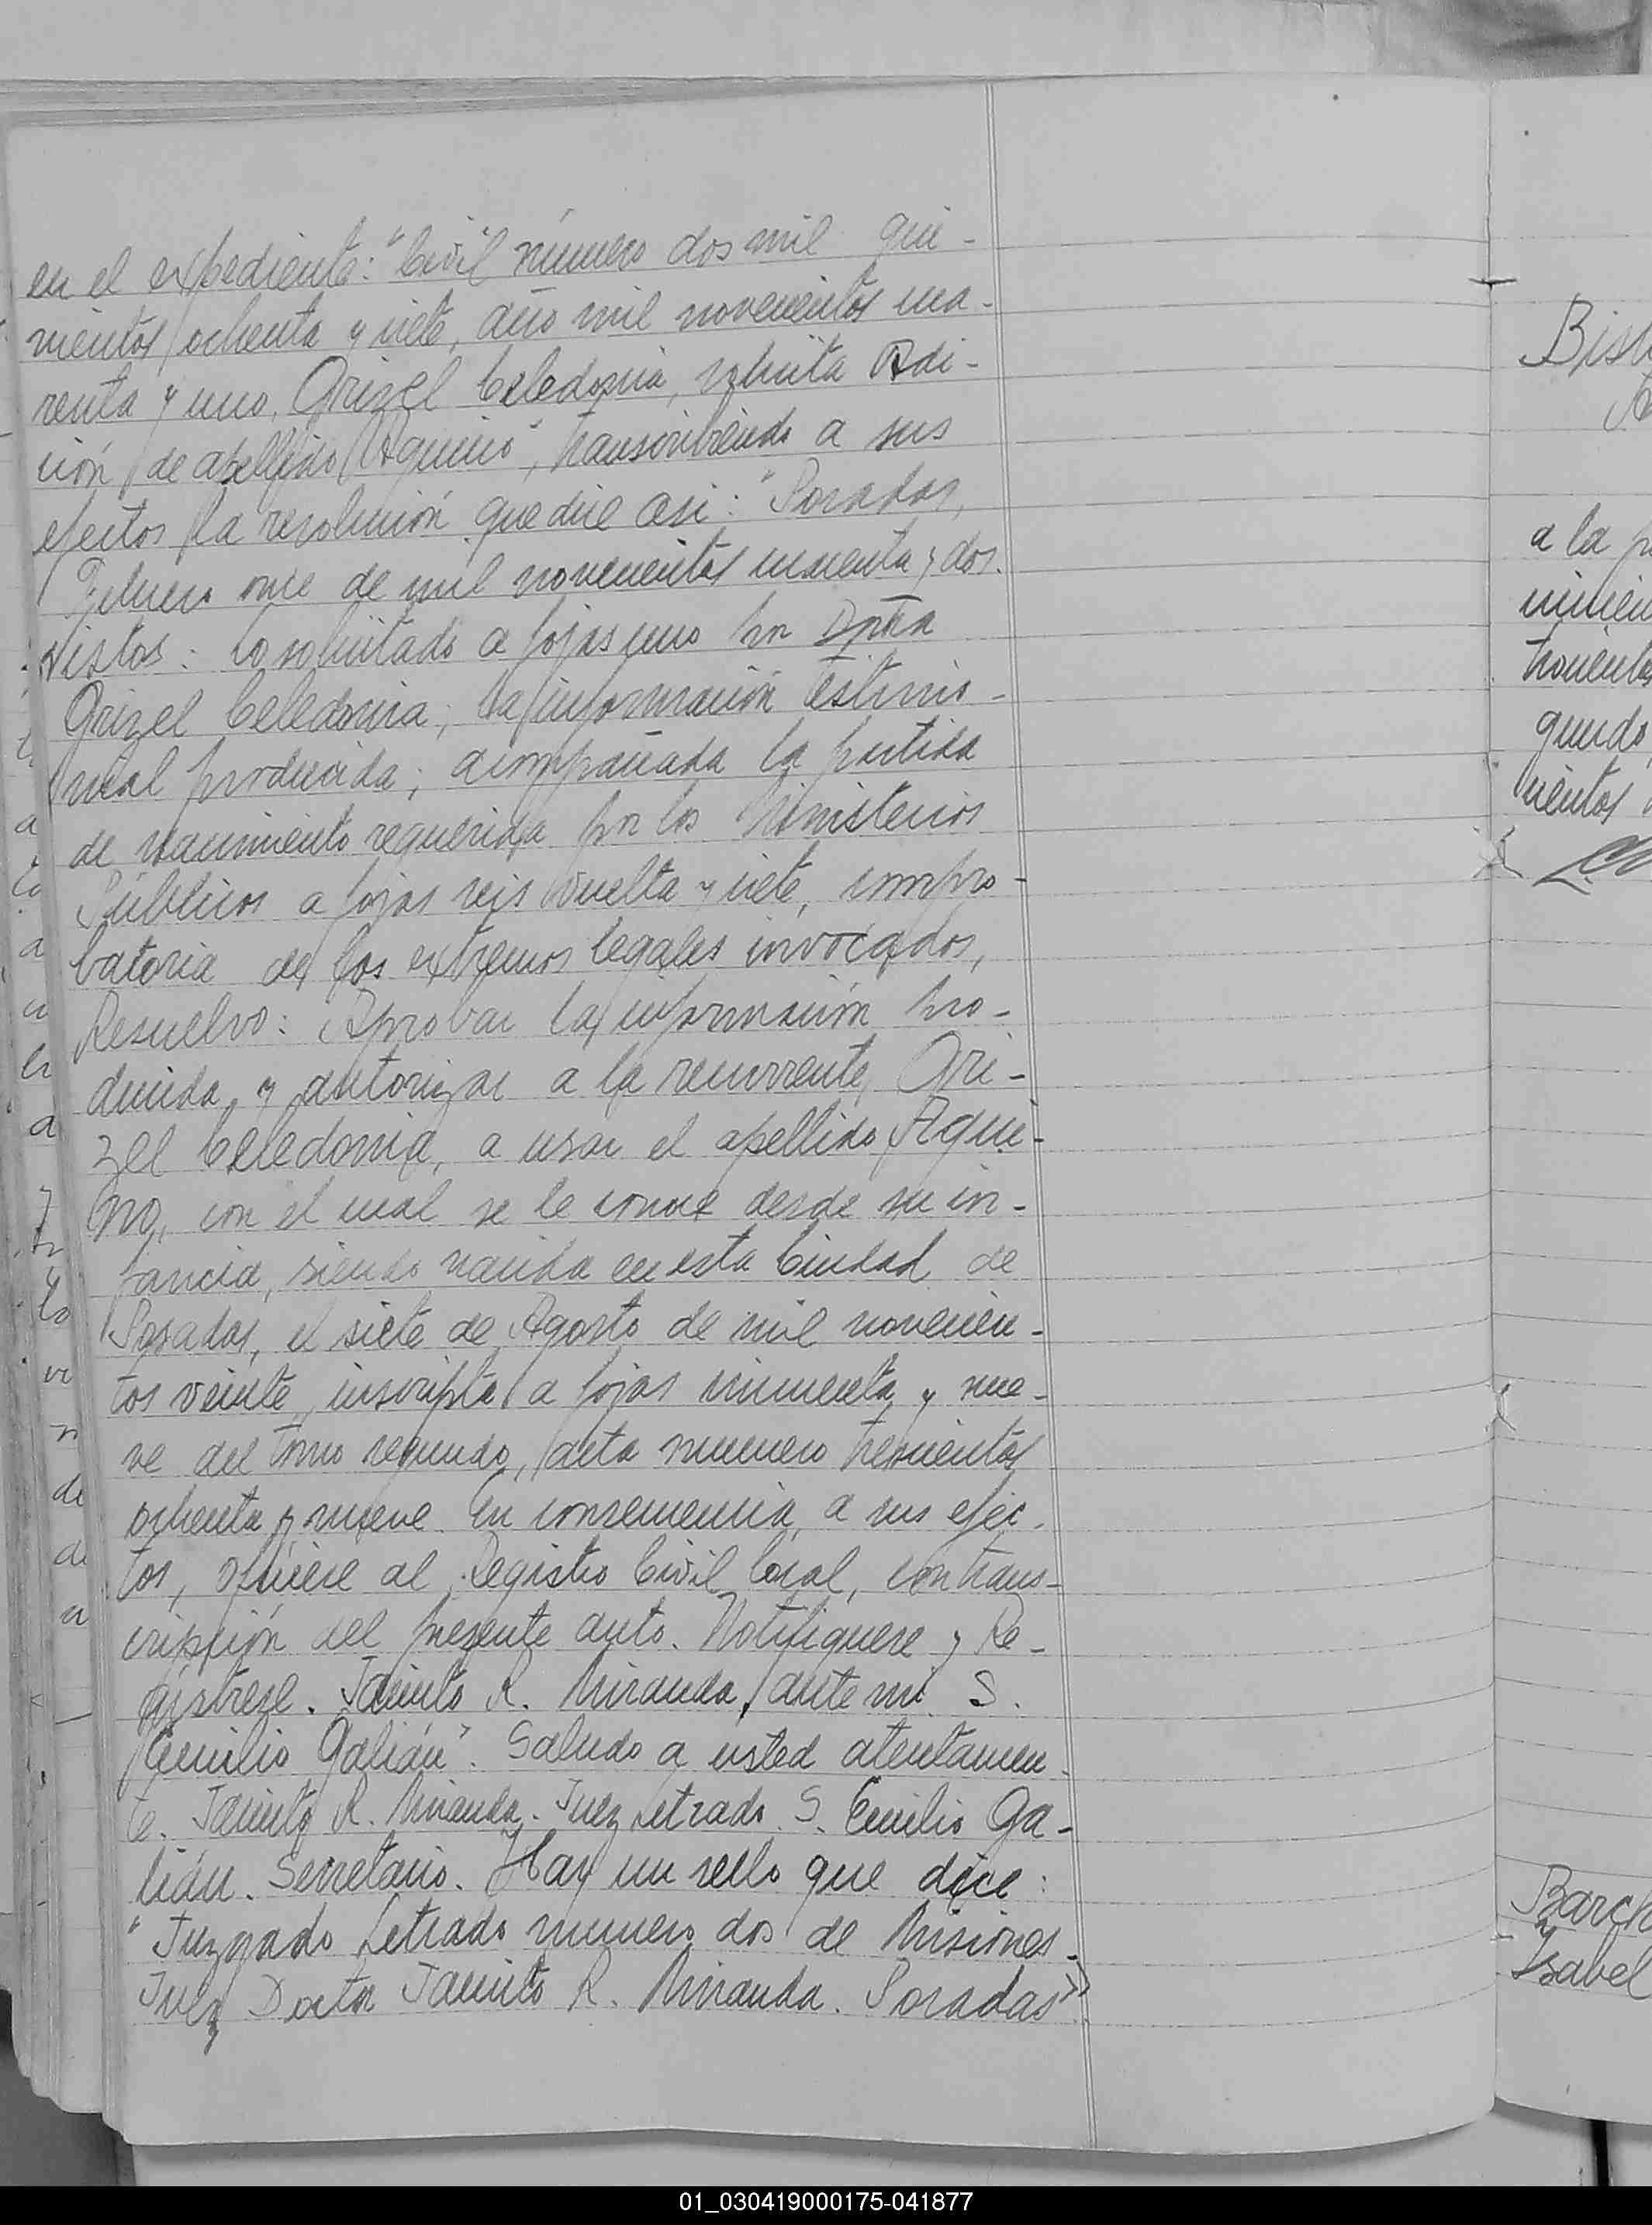 en el expediente: "Civil número dos mil qui-
nientos ochenta y siete, año mil novecientos cua-
renta y uno, Grizel Celedonia, solicita Adi-
ción de apellido Aquino", transcribiendo a sus
efectos la resolución que dice asi: "Posadas,
Febrero once de mil novecientos cuarenta y dos.
Vistos: Lo solicitado a fojas uno por Doña
Grizel Celedonia; la información testimo-
nial producida; acompañada la partida
de nacimiento requerida por los Ministerios
Públicos a fojas seis vuelta y siete, compro-
batoria de los extremos legales invocados,
Resuelvo: Aprobar la información pro-
ducida y autorizar a la recurrente, Gri-
zel Celedonia, a usar el apellido Aqui-
no, con el cual se le conoce desde su in-
fancia, siendo nacida en esta Ciudad de
Posadas, el siete de Agosto de mil novecien-
tos veinte, inscripta a fojas cincuenta y nue-
ve del tomo segundo, acta numero trescientos
ochenta y nueve. En consecuencia, a sus efec-
tos, ofíciese al Registro Civil local, con trans-
cripción del presente auto. Notifiquese y Re-
gistrese. Jacinto R. Miranda, ante mi S.
Emilio Galián". Saludo a usted atentamen-
te. Jacinto R. Miranda. Juez Letrado. S. Emilio Ga-
lián. Secretario. Hay un sello que dice:
"Juzgado Letrado numero dos de Misiones.
Juez Doctor Jacinto R. Miranda. Posadas"
a la
gundo
cientos
Isabel
01_030419000175-041877